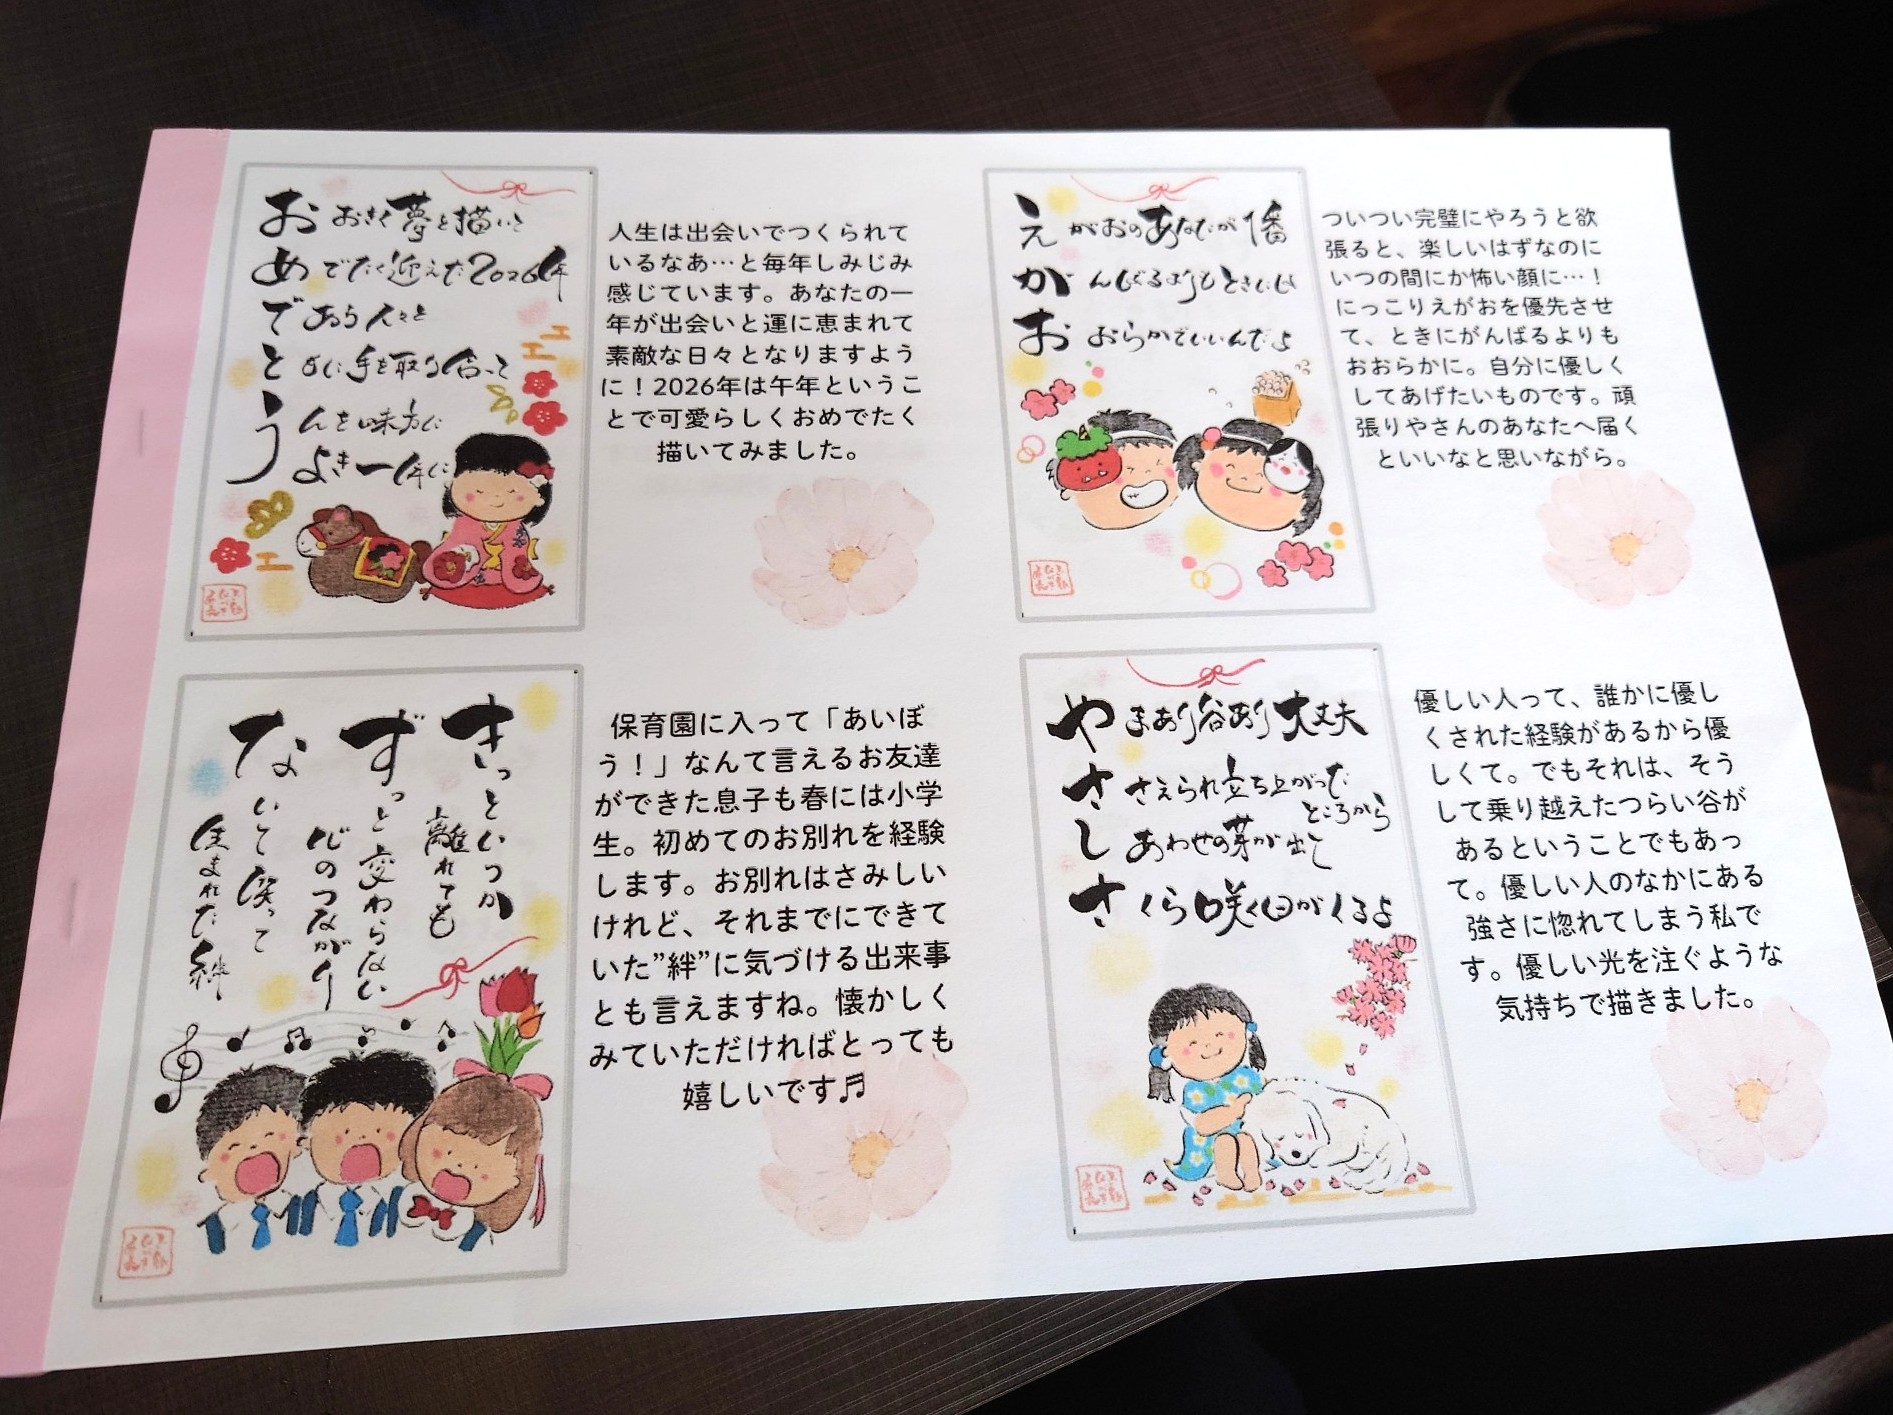 おおきく夢を描いて
めでたく迎えた2026年
であう人々と
ともに手を取り合って
うんを味方に
よき一年に
人生は出会いでつくられて
いるなあ…と毎年しみじみ
感じています。あなたの一
年が出会いと運に恵まれて
素敵な日々となりますよう
に！2026年は午年というこ
とで可愛らしくおめでたく
描いてみました。
えがおのあなたが1番
がんばるよりもときには
おおらかでいいんだよ
ついつい完璧にやろうと欲
張ると、楽しいはずなのに
いつの間にか怖い顔に…！
にっこりえがおを優先させ
て、ときにがんばるよりも
おおらかに。自分に優しく
してあげたいものです。頑
張りやさんのあなたへ届く
といいなと思いながら。
きっといつか
離れても
ずっと変わらない
心のつながり
ないて笑って
生まれた絆
保育園に入って「あいぼ
う！」なんて言えるお友達
ができた息子も春には小学
生。初めてのお別れを経験
します。お別れはさみしい
けれど、それまでにできて
いた”絆”に気づける出来事
とも言えますね。懐かしく
みていただければとっても
嬉しいです♬
やまあり谷あり大丈夫
ささえられ立ち上がった
ところから
しあわせの芽が出て
さくら咲く日がくるよ
優しい人って、誰かに優し
くされた経験があるから優
しくて。でもそれは、そう
して乗り越えたつらい谷が
あるということでもあっ
て。優しい人のなかにある
強さに惚れてしまう私で
す。優しい光を注ぐような
気持ちで描きました。